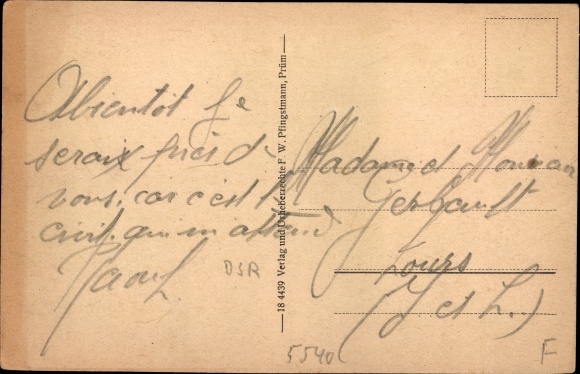 Abientôt Je
serais près d
vous, car c'est l
civil qui m'attend
Raoul
DSR
18 4439 Verlag und Urheberrechte F. W. Pfingstmann, Prüm
Madame et Monsieur
Gerbault
Tours
(I et L.)
5540
F